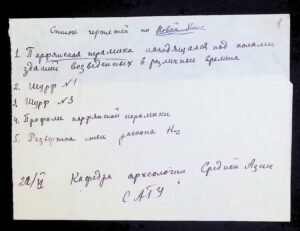 1
Список чертежей по Новой Нисе
1. Парфянская керамика находящаяся под полами
зданий возведенных в различные времена
2. Шурф №1
3. Шурф №3
4. Профили парфянской керамики
5. Развертка стен раскопа
22/VI Кафедра археологии Средней Азии
САГУ